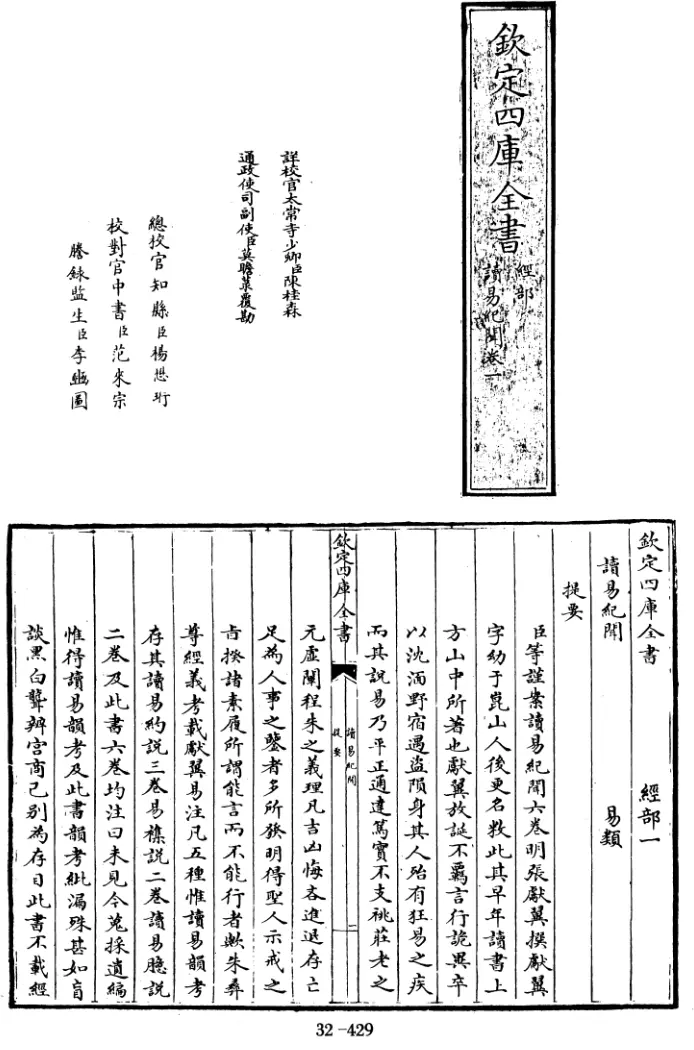 欽定四庫全書
經部
讀易紀聞卷一
詳校官太常寺少卿臣陳桂森
通政使司副使臣莫瞻菉覆勘
總校官知縣臣楊懋珩
校對官中書臣范來宗
謄錄監生臣李
欽定四庫全書 經部一
讀易紀聞 易類
提要
臣等謹案讀易紀聞六卷明張獻翼撰獻翼
字幼于崑山人後更名敉此其早年讀書上
方山中所著也獻翼放誕不羈言行詭異卒
以沈湎野宿遇盜隕身其人殆有狂易之疾
而其說易乃平正通達篤實不支祧莊老之
欽定四庫全書
讀易紀聞
提要
一
元虛闡程朱之義理凡吉凶悔吝進退存亡
足為人事之鑒者多所發明得聖人示戒之
旨揆諸素履所謂能言而不能行者歟朱彝
尊經義考載獻翼易注凡五種惟讀易韻考
存其讀易約說三卷易襍說二卷讀易臆說
二卷及此書六卷均注曰未見今蒐採遺編
惟得讀易韻考及此書韻考紕漏殊甚如盲
談黑白聾辨宫商己别為存目此書不載經
32-429